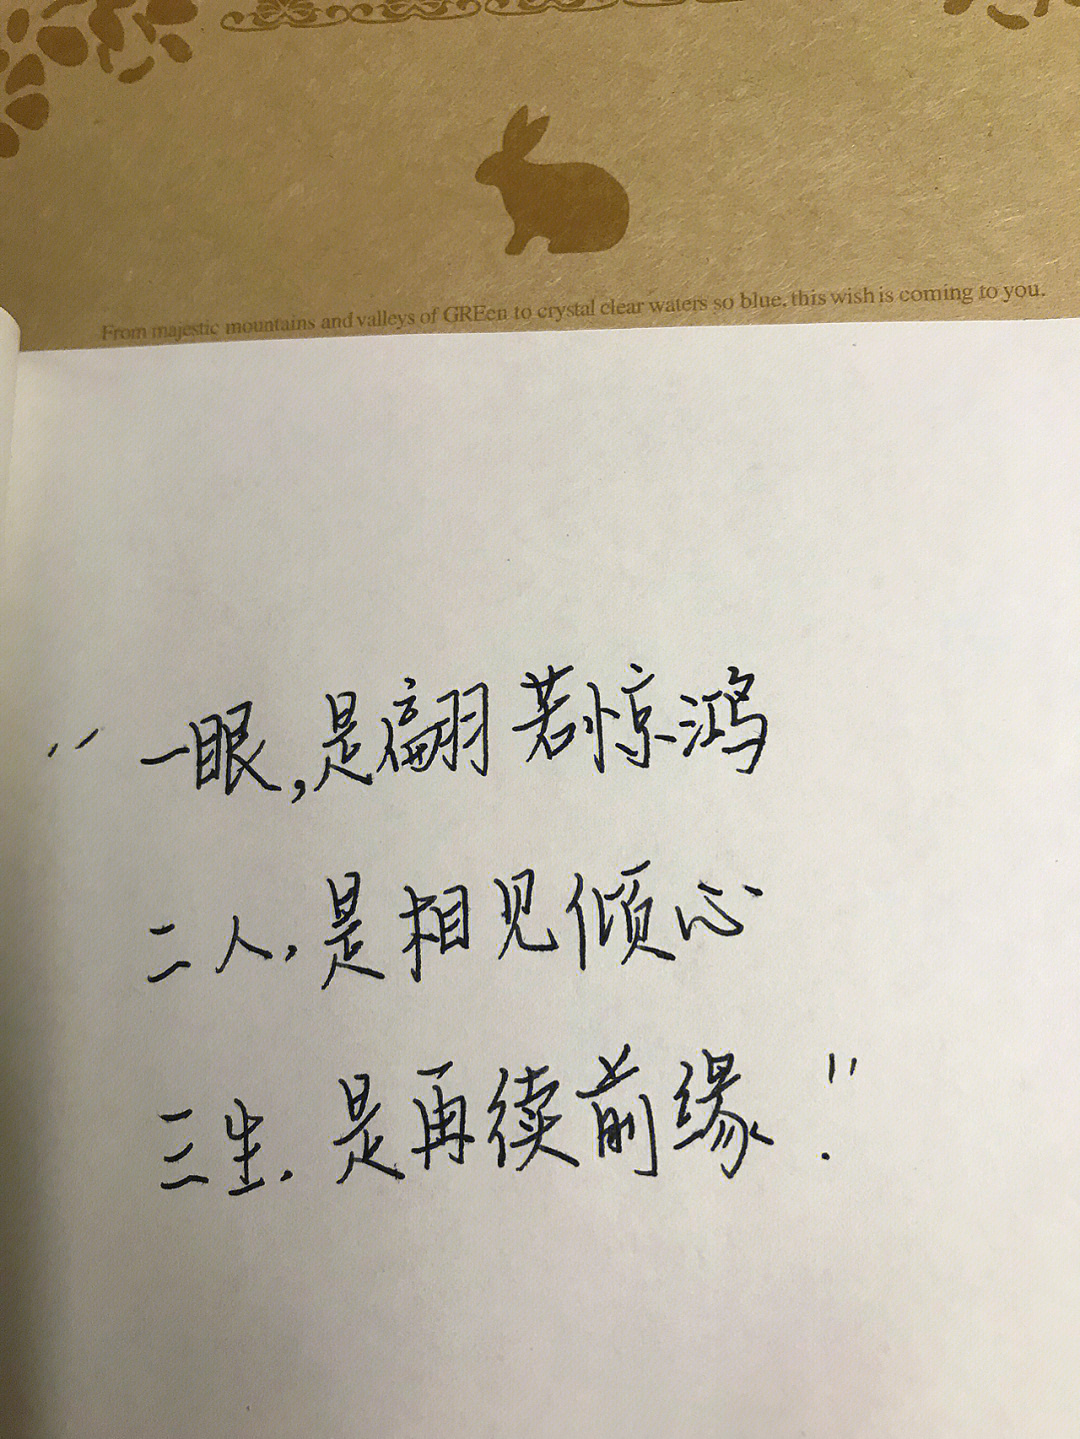 From majestic mountains and valleys of GREen to crystal clear waters so blue, this wish is coming to you.
“一眼,是翩若惊鸿
二人,是相见倾心
三生,是再续前缘.”